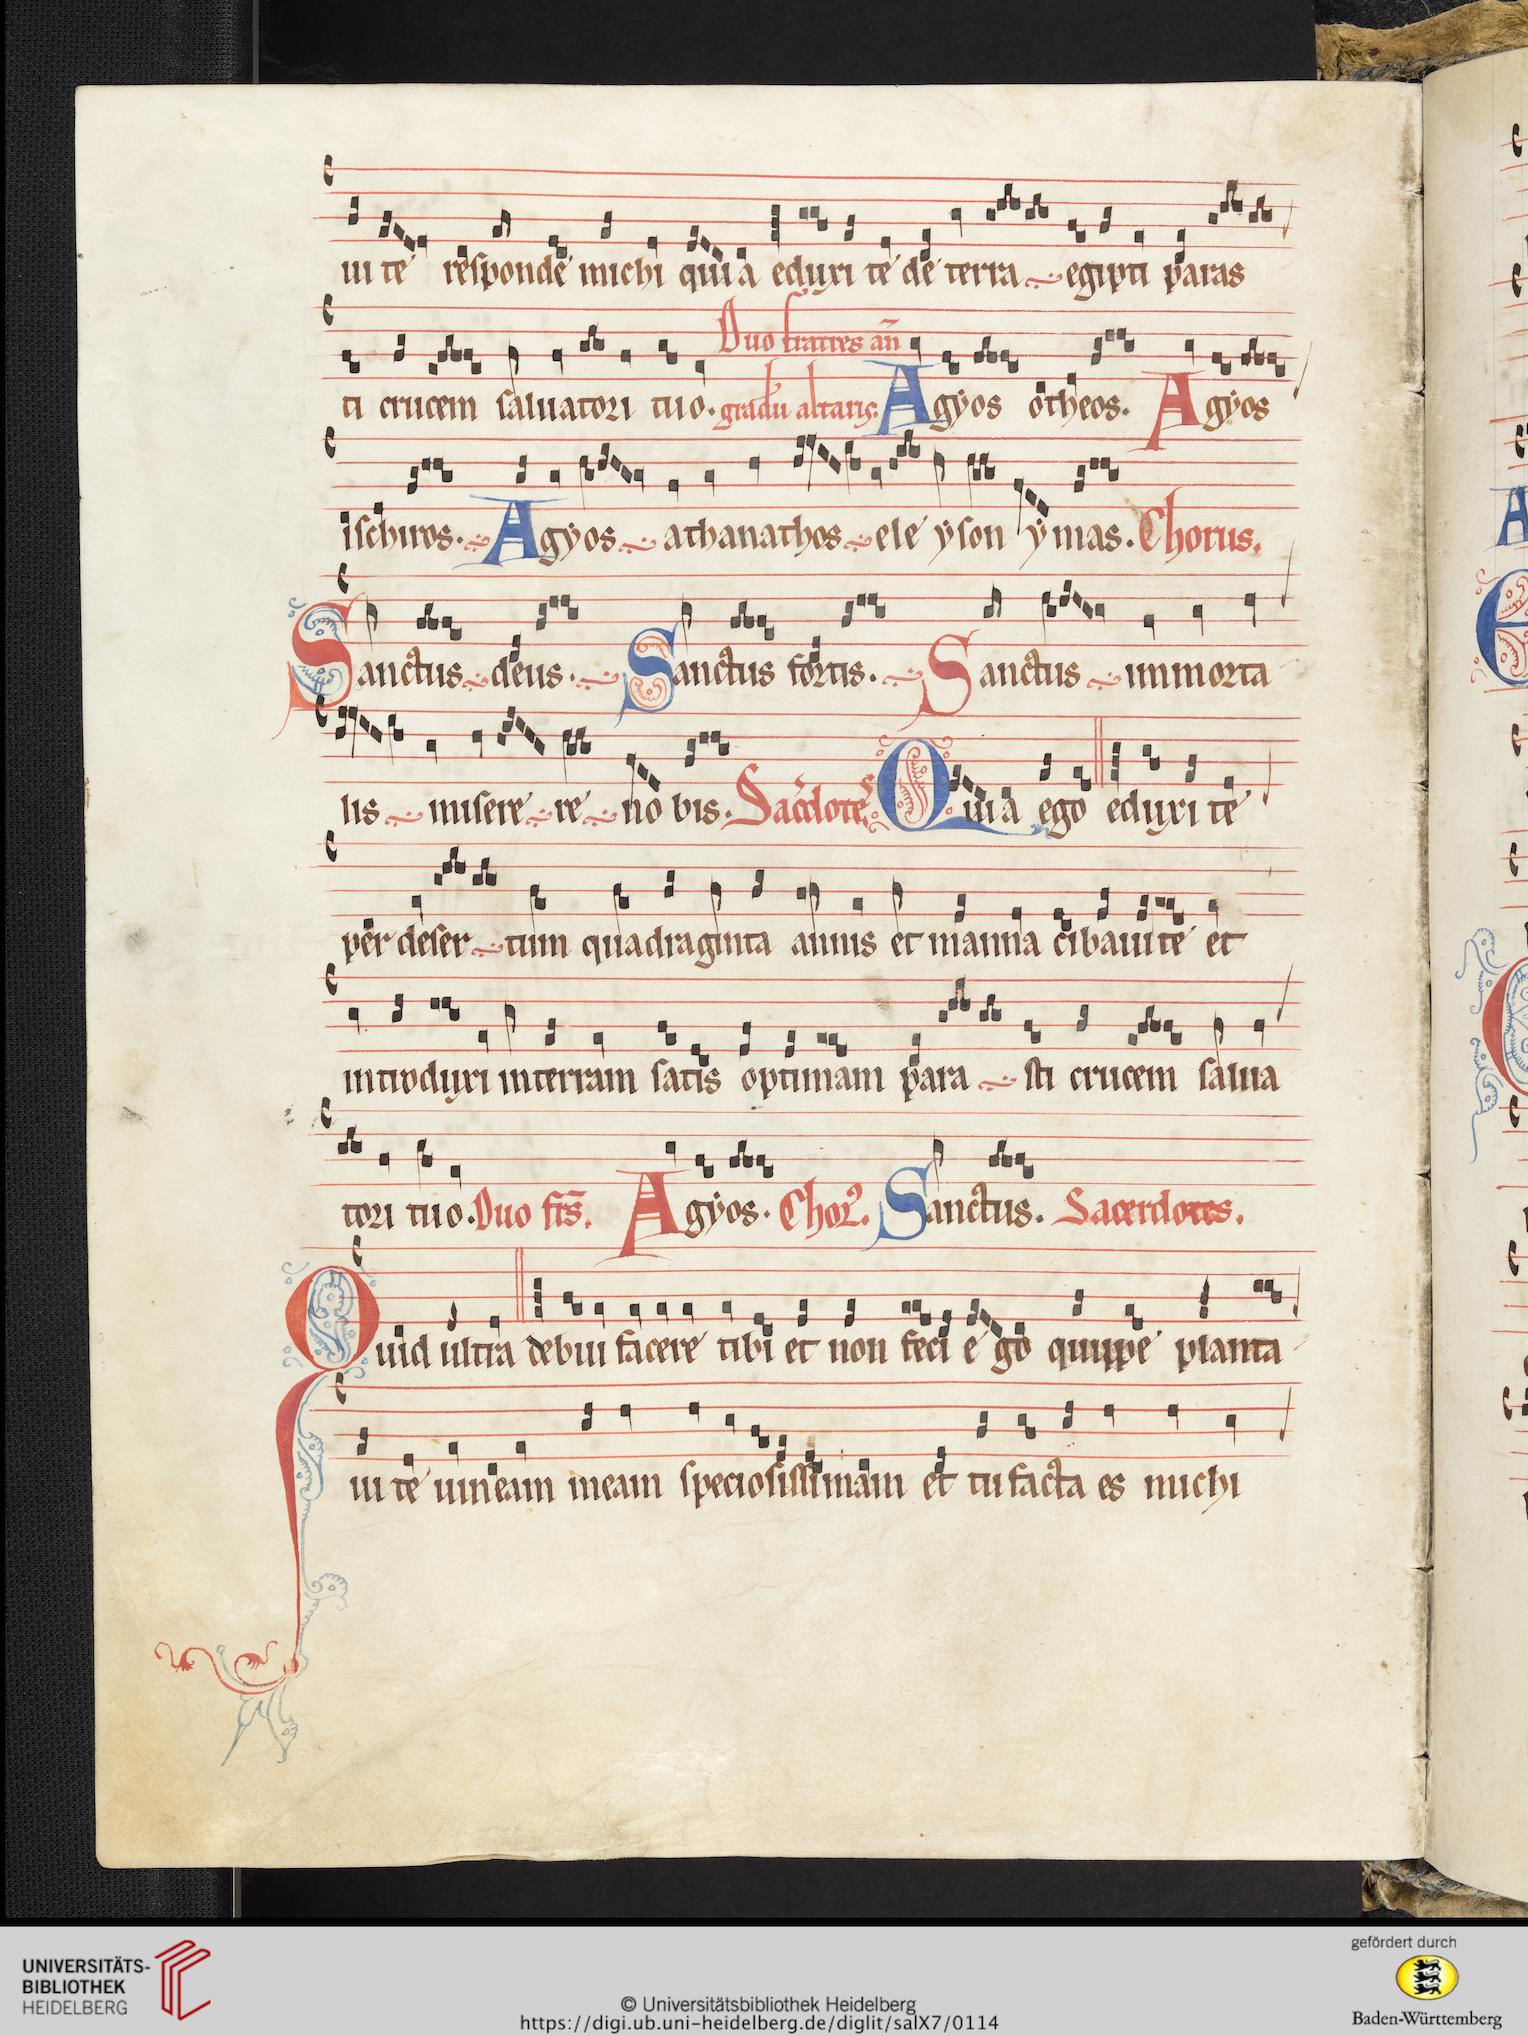 ui te responde michi quia eduxi te de terra egipti paras
Duo fratres an̄
ti crucem saluatori tuo. gradu altaris. Agẏos otheos. Agẏos
ischiros. Agẏos athanathos ele ẏson ẏmas. Chorus.
Sanctus deus. Sanctus fortis. Sanctus immorta
lis misere re no bis. Sac̄dotes Quia ego eduxi te
per deser tum quadraginta annis et manna cibaui te et
introduxi in terram satis optimam para sti crucem salua
tori tuo. Duo fr̄s. Agẏos. Chorꝰ. Sanctus. Sacerdotes.
Quid ultra debui facere tibi et non feci e go quippe planta
ui te uineam meam speciosissimam et tu facta es michi
UNIVERSITÄTS-
BIBLIOTHEK
HEIDELBERG
© Universitätsbibliothek Heidelberg
https://digi.ub.uni-heidelberg.de/diglit/salX7/0114
gefördert durch
Baden-Württemberg